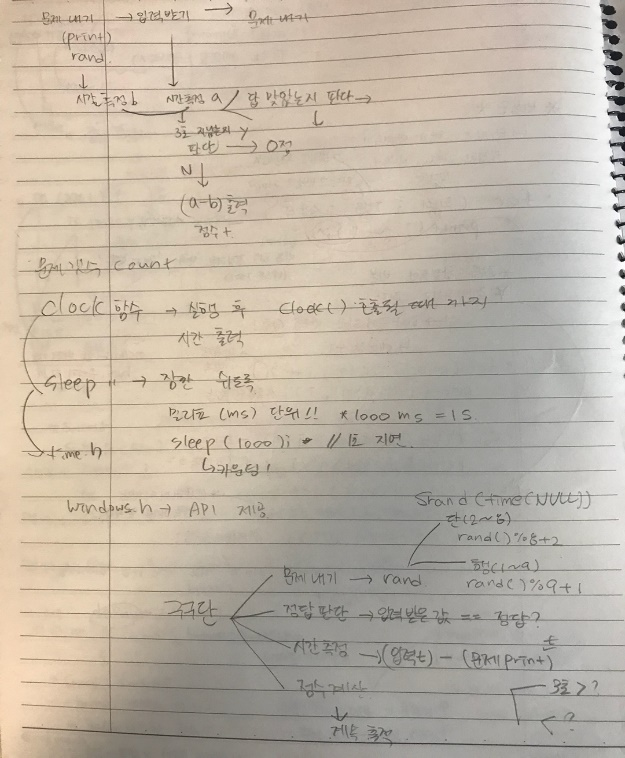 문제 내기 → 입력받기 → 문제 내기
(print)
rand
시간측정 b 시간측정 a / 답 맞았는지 판단 →
3초 지났는지 Y
판단 → 0점
N ↓
(a-b) 출력
점수 +
문제 갯수 count
clock 함수 → 실행 후 clock() 호출될 때 까지
시간 출력
sleep " → 잠깐 쉬도록
밀리초 (ms) 단위!! *1000 ms = 1s
time.h sleep (1000); // 1초 지연
↳카운팅!
windows.h → API 제공
srand(time(NULL))
단(2~8)
rand()%8+2
행(1~9)
문제 내기 → rand rand()%9+1
구구단
정답 판단 → 입력받은 값 == 정답?
시간 측정 → (입력t) - (문제print) t
점수 계산 3초 > ?
< ?
↓
계속 출력